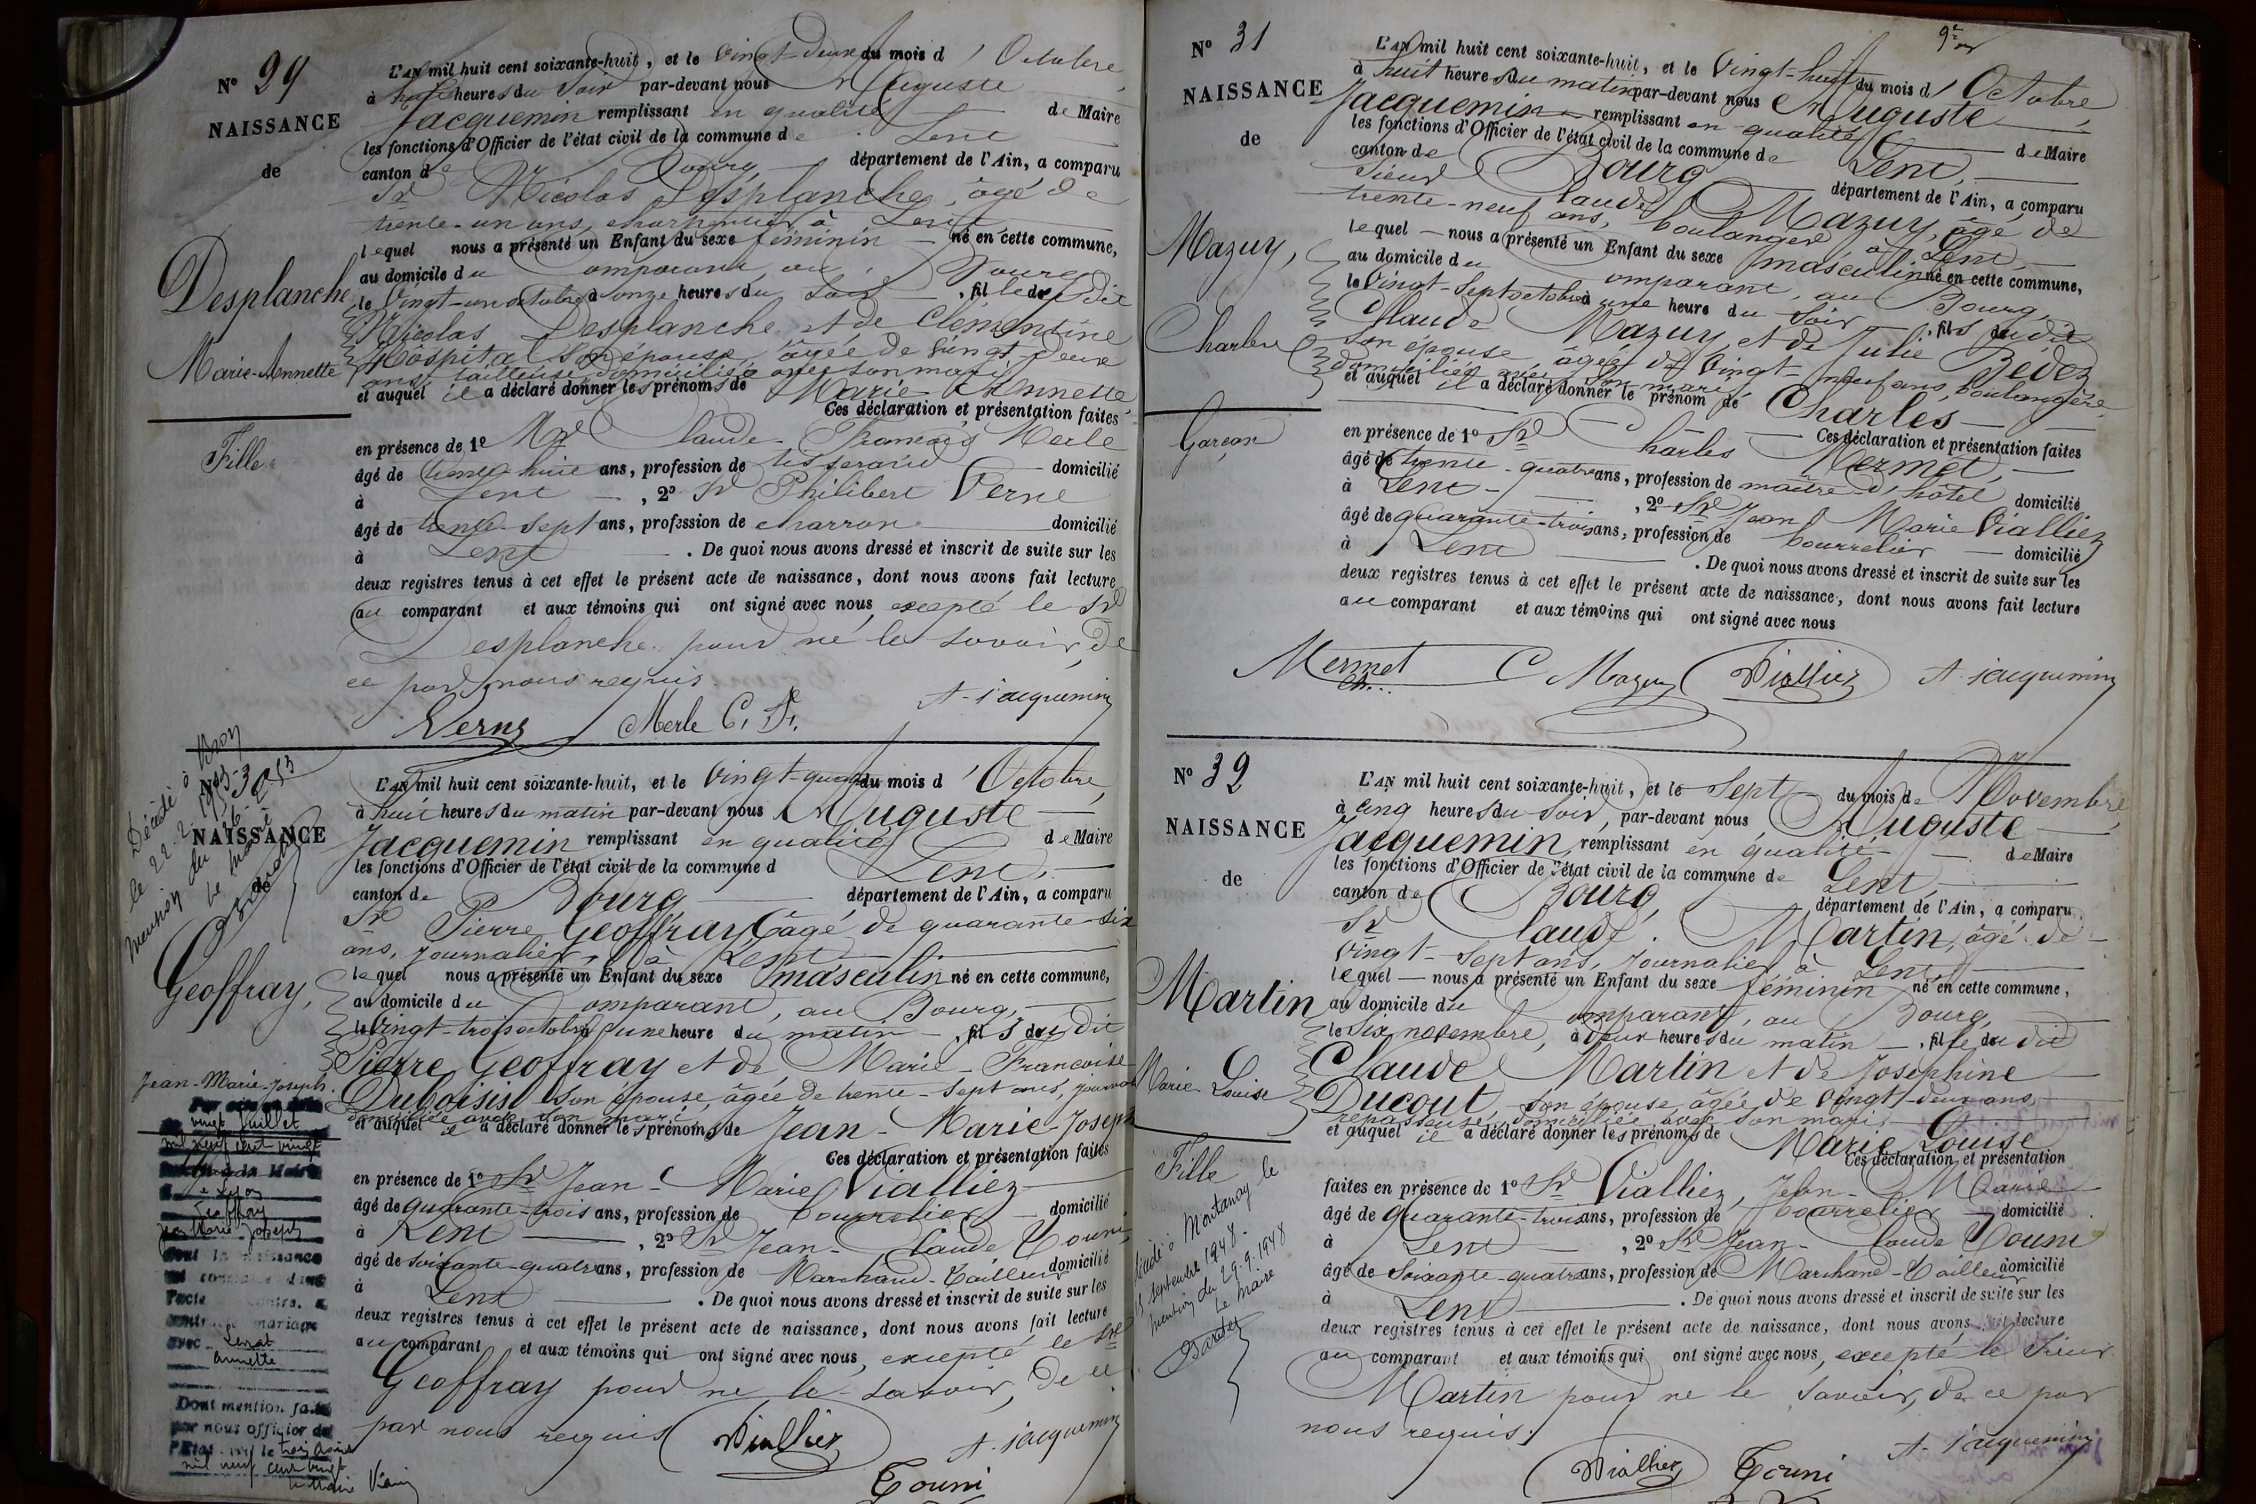 N° 29
NAISSANCE
de
Desplanche
Marie-Annette
Fille
L'AN mil huit cent soixante-huit, et le vingt-deux du mois d'Octobre,
à huit heures du soir par-devant nous Auguste
Jacquemin remplissant en qualité de Maire
les fonctions d'Officier de l'état civil de la commune de Lent
canton de Bourg département de l'Ain, a comparu
Sr Nicolas Desplanche, âgé de
trente-un ans, charpentier à Lent
lequel nous a présenté un Enfant du sexe féminin né en cette commune,
au domicile du Comparant, au Bourg
le vingt-un octobre à onze heures du soir, fille du dit
Nicolas Desplanche et de Clémentine
Hospital son épouse, âgée de vingt-deux
ans, tailleuse, domiciliée avec son mari
et auquel il a déclaré donner les prénoms de Marie-Annette
Ces déclaration et présentation faites
en présence de 1° Sr Claude-François Merle
âgé de trente-huit ans, profession de tisserand domicilié
à Lent, 2° Sr Philibert Verne
âgé de trente-sept ans, profession de charron domicilié
à Lent. De quoi nous avons dressé et inscrit de suite sur les
deux registres tenus à cet effet le présent acte de naissance, dont nous avons fait lecture
au comparant et aux témoins qui ont signé avec nous, excepté le Sr
Desplanche pour ne le savoir, de
ce par nous requis
Verne Merle C. F. A. Jacquemin
Décédé à Bron
le 22-2-1953
Mention du
Le Maire
N° 30
NAISSANCE
de
Geoffray,
Jean-Marie-Joseph.
vingt Juillet
mil neuf cent vingt
à Lyon
Geoffray
Jean Marie Joseph
dont la naissance
contracté mariage
avec
Annette
Dont mention faite
par nous officier de
l'Etat civil le trois
mil neuf cent vingt
L'AN mil huit cent soixante-huit, et le vingt-quatre du mois d'Octobre,
à huit heures du matin par-devant nous Auguste
Jacquemin remplissant en qualité de Maire
les fonctions d'Officier de l'état civil de la commune d Lent,
canton de Bourg département de l'Ain, a comparu
Sr Pierre Geoffray âgé de quarante-six
ans, journalier, à Lent
lequel nous a présenté un Enfant du sexe masculin né en cette commune,
au domicile du Comparant, au Bourg,
le vingt-trois octobre à une heure du matin, fils du dit
Pierre Geoffray et de Marie-Françoise
Duboisis son épouse, âgée de trente-sept ans,
domiciliée avec son mari
et auquel il a déclaré donner les prénoms de Jean-Marie-Joseph
Ces déclaration et présentation faites
en présence de 1° Sr Jean-Marie Vialliez
âgé de quarante-trois ans, profession de bourrelier domicilié
à Lent, 2° Sr Jean-Claude Touni
âgé de soixante-quatre ans, profession de Marchand-Tailleur domicilié
à Lent. De quoi nous avons dressé et inscrit de suite sur les
deux registres tenus à cet effet le présent acte de naissance, dont nous avons fait lecture
au comparant et aux témoins qui ont signé avec nous, excepté le Sr
Geoffray pour ne le savoir, de ce
par nous requis Vialliez A. Jacquemin
Touni
N° 31
NAISSANCE
de
Mazuy,
Charles
Garçon
L'AN mil huit cent soixante-huit, et le vingt-huit du mois d'Octobre,
à huit heures du matin par-devant nous Auguste
Jacquemin remplissant en qualité de Maire
les fonctions d'Officier de l'état civil de la commune de Lent,
canton de Bourg département de l'Ain, a comparu
Sieur Claude Mazuy, âgé de
trente-neuf ans, boulanger à Lent,
lequel nous a présenté un Enfant du sexe masculin né en cette commune,
au domicile du Comparant, au Bourg,
le vingt-sept octobre à une heure du soir, fils du dit
Claude Mazuy et de Julie Bedez
son épouse, âgée de vingt-neuf ans, boulangère,
domiciliée avec son mari
et auquel il a déclaré donner le prénom de Charles
Ces déclaration et présentation faites
en présence de 1° Sr Charles Mermet,
âgé de trente-quatre ans, profession de maître d'hôtel domicilié
à Lent, 2° Sr Jean Marie Vialliez
âgé de quarante-trois ans, profession de bourrelier domicilié
à Lent. De quoi nous avons dressé et inscrit de suite sur les
deux registres tenus à cet effet le présent acte de naissance, dont nous avons fait lecture
au comparant et aux témoins qui ont signé avec nous
Mermet Ch. C Mazuy Vialliez A. Jacquemin
N° 32
NAISSANCE
de
Martin
Marie-Louise
Fille
Décédé à Montanay le
15 septembre 1948.
Mention du 29.9.1948
Le Maire
L'AN mil huit cent soixante-huit, et le Sept du mois de Novembre,
à cinq heures du soir, par-devant nous Auguste
Jacquemin, remplissant en qualité de Maire
les fonctions d'Officier de l'état civil de la commune de Lent,
canton de Bourg, département de l'Ain, a comparu
Sr Claude Martin, âgé de
vingt-sept ans, journalier à Lent,
lequel nous a présenté un Enfant du sexe féminin né en cette commune,
au domicile du Comparant, au Bourg,
le six novembre, à deux heures du matin, fille du dit
Claude Martin et de Joséphine
Ducout, son épouse âgée de vingt-deux ans,
repasseuse, domiciliée avec son mari,
et auquel il a déclaré donner les prénoms de Marie Louise
Ces déclaration et présentation
faites en présence de 1° Sr Vialliez, Jean-Marie
âgé de quarante-trois ans, profession de bourrelier domicilié
à Lent, 2° Sr Jean-Claude Touni
âgé de soixante-quatre ans, profession de Marchand-Tailleur domicilié
à Lent. De quoi nous avons dressé et inscrit de suite sur les
deux registres tenus à cet effet le présent acte de naissance, dont nous avons fait lecture
au comparant et aux témoins qui ont signé avec nous, excepté le Sieur
Martin pour ne le savoir, de ce par
nous requis.
Vialliez Touni A. Jacquemin